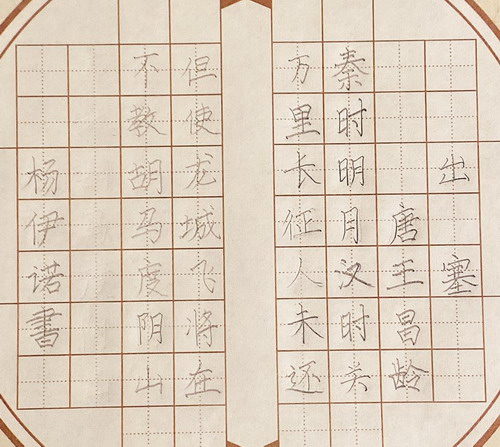 出塞
唐王昌龄
秦时明月汉时关
万里长征人未还
但使龙城飞将在
不教胡马度阴山
杨伊诺書